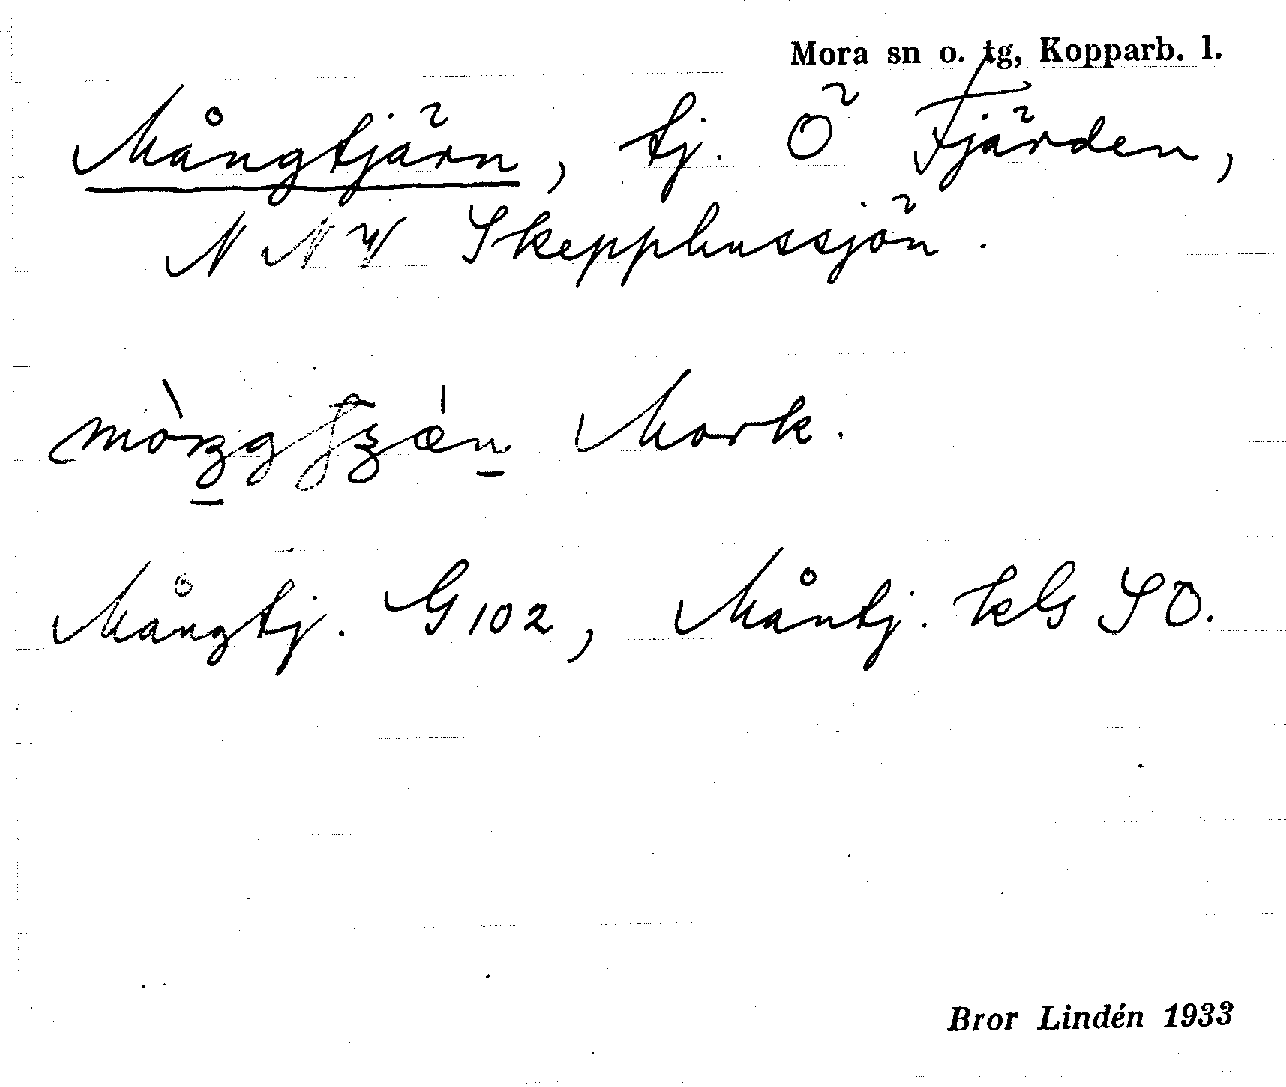 Mora sn o. tg, Kopparb. l.
Mångtjärn, tj. Ö Fjärden,
NNV Skepphussjön.
Mork.
Mångtj. G 102, Måntj. kG SO.
Bror Lindén 1933